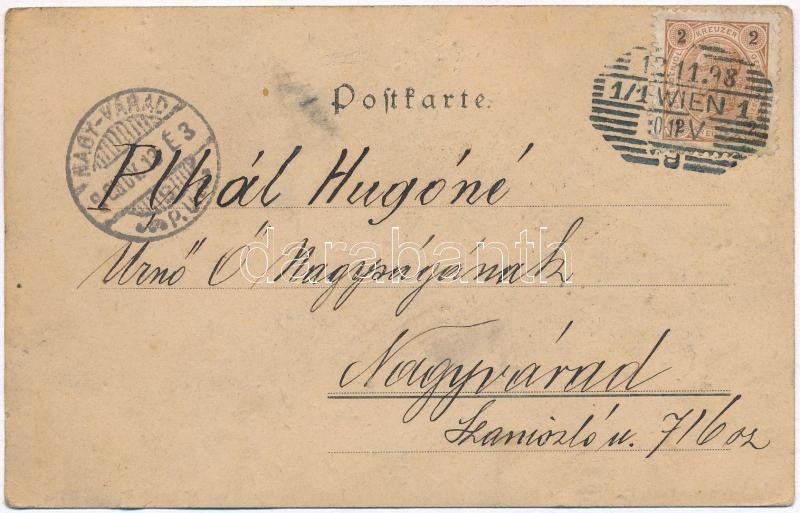 2 KREUZER 2
13.11.98
1/1 WIEN 1
V
8
Postkarte.
NAGY-VÁRAD
P.U.
Plhál Hugóné
Urnő Ő Nagyságának
darabanth
Nagyvárad
Szaniszló u. 716 sz